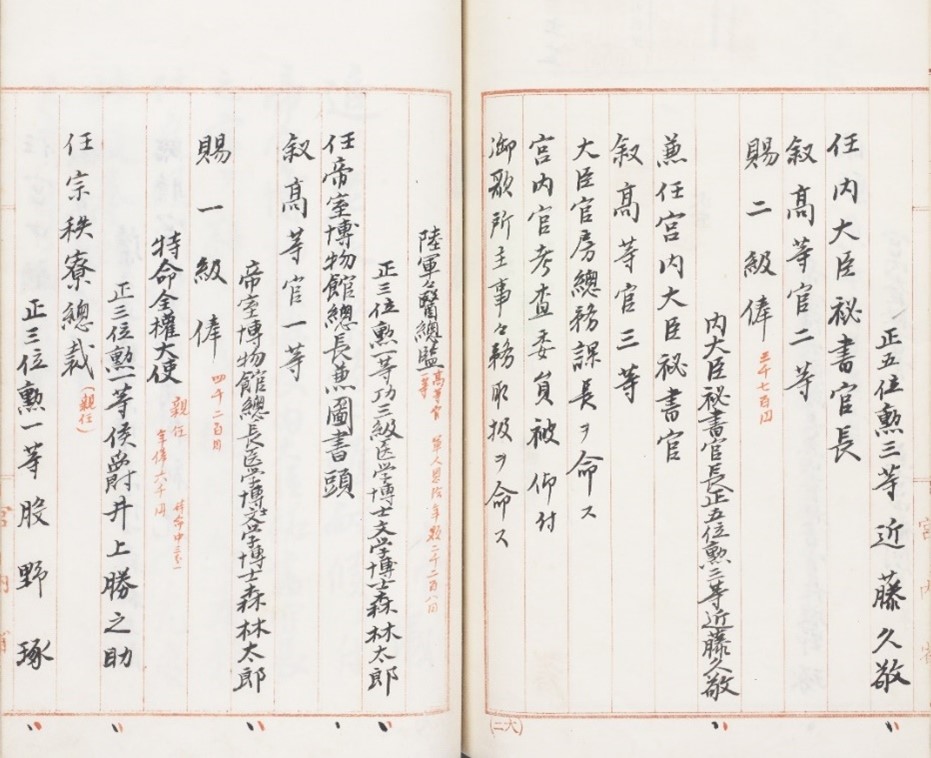 正五位勲三等 近藤久敬
任内大臣秘書官長
叙高等官二等
賜二級俸 三千七百円
内大臣秘書官長正五位勲三等近藤久敬
兼任宮内大臣秘書官
叙高等官三等
大臣官房總務課長ヲ命ス
宮内官考査委員被仰付
御歌所主事々務取扱ヲ命ス
(二大)
陸軍々醫總監 高等官一等 軍人恩給年額二千二百八円
正三位勲一等功三級医学博士文学博士森林太郎
任帝室博物館總長兼圖書頭
叙高等官一等
帝室博物館總長医学博士文学博士森林太郎
賜一級俸 四千二百円
特命全權大使 親任 年俸六千円
正三位勲一等侯爵井上勝之助
任宗秩寮總裁 (親任)
正三位勲一等股野琢
宮内省